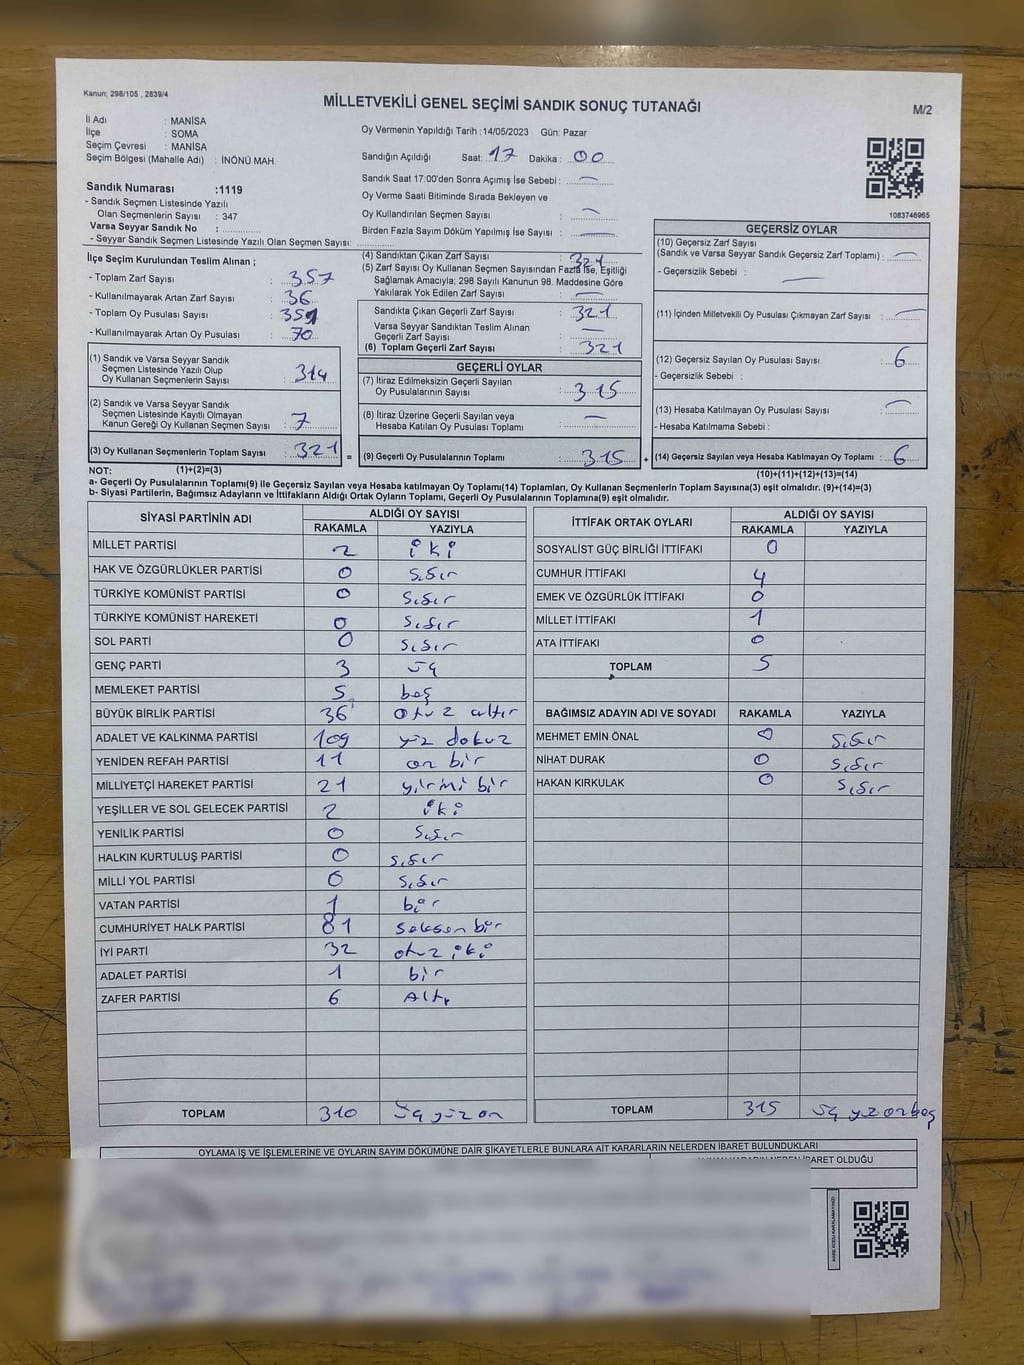 Kanun; 298/105 , 2839/4
MİLLETVEKİLİ GENEL SEÇİMİ SANDIK SONUÇ TUTANAĞI
M/2
İl Adı : MANİSA
İlçe : SOMA
Seçim Çevresi : MANİSA
Seçim Bölgesi (Mahalle Adı) : İNÖNÜ MAH.
Oy Vermenin Yapıldığı Tarih :14/05/2023 Gün: Pazar
Sandığın Açıldığı Saat: 17 Dakika : 00
Sandık Saat 17:00'den Sonra Açımış İse Sebebi :
Oy Verme Saati Bitiminde Sırada Bekleyen ve
Oy Kullandırılan Seçmen Sayısı :
Birden Fazla Sayım Döküm Yapılmış İse Sayısı :
1083746965
Sandık Numarası :1119
- Sandık Seçmen Listesinde Yazılı
Olan Seçmenlerin Sayısı : 347
Varsa Seyyar Sandık No :
- Seyyar Sandık Seçmen Listesinde Yazılı Olan Seçmen Sayısı:
İlçe Seçim Kurulundan Teslim Alınan ;
- Toplam Zarf Sayısı : 357
- Kullanılmayarak Artan Zarf Sayısı : 36
- Toplam Oy Pusulası Sayısı :
- Kullanılmayarak Artan Oy Pusulası : 70
(1) Sandık ve Varsa Seyyar Sandık
Seçmen Listesinde Yazılı Olup
Oy Kullanan Seçmenlerin Sayısı : 314
(2) Sandık ve Varsa Seyyar Sandık
Seçmen Listesinde Kayıtlı Olmayan
Kanun Gereği Oy Kullanan Seçmen Sayısı : 7
(3) Oy Kullanan Seçmenlerin Toplam Sayısı : 321 =
(4) Sandıktan Çıkan Zarf Sayısı : 321
(5) Zarf Sayısı Oy Kullanan Seçmen Sayısından Fazla İse, Eşitliği
Sağlamak Amacıyla; 298 Sayılı Kanunun 98. Maddesine Göre
Yakılarak Yok Edilen Zarf Sayısı :
Sandıkta Çıkan Geçerli Zarf Sayısı : 321
Varsa Seyyar Sandıktan Teslim Alınan
Geçerli Zarf Sayısı :
(6) Toplam Geçerli Zarf Sayısı : 321
GEÇERLİ OYLAR
(7) İtiraz Edilmeksizin Geçerli Sayılan
Oy Pusulalarının Sayısı : 315
(8) İtiraz Üzerine Geçerli Sayılan veya
Hesaba Katılan Oy Pusulası Toplamı :
(9) Geçerli Oy Pusulalarının Toplamı : 315 +
GEÇERSİZ OYLAR
(10) Geçersiz Zarf Sayısı
(Sandık ve Varsa Seyyar Sandık Geçersiz Zarf Toplamı) :
- Geçersizlik Sebebi :
(11) İçinden Milletvekili Oy Pusulası Çıkmayan Zarf Sayısı :
(12) Geçersiz Sayılan Oy Pusulası Sayısı : 6
- Geçersizlik Sebebi :
(13) Hesaba Katılmayan Oy Pusulası Sayısı :
- Hesaba Katılmama Sebebi :
(14) Geçersiz Sayılan veya Hesaba Katılmayan Oy Toplamı : 6
NOT: (1)+(2)=(3) (10)+(11)+(12)+(13)=(14)
a- Geçerli Oy Pusulalarının Toplamı(9) ile Geçersiz Sayılan veya Hesaba katılmayan Oy Toplamı(14) Toplamları, Oy Kullanan Seçmenlerin Toplam Sayısına(3) eşit olmalıdır. (9)+(14)=(3)
b- Siyasi Partilerin, Bağımsız Adayların ve İttifakların Aldığı Ortak Oyların Toplamı, Geçerli Oy Pusulalarının Toplamına(9) eşit olmalıdır.
SİYASİ PARTİNİN ADI ALDIĞI OY SAYISI
RAKAMLA YAZIYLA
MİLLET PARTİSİ 2 iki
HAK VE ÖZGÜRLÜKLER PARTİSİ 0 sıfır
TÜRKİYE KOMÜNİST PARTİSİ 0 sıfır
TÜRKİYE KOMÜNİST HAREKETİ 0 sıfır
SOL PARTİ 0 sıfır
GENÇ PARTİ 3 üç
MEMLEKET PARTİSİ 5 beş
BÜYÜK BİRLİK PARTİSİ 36 otuz altı
ADALET VE KALKINMA PARTİSİ 109 yüz dokuz
YENİDEN REFAH PARTİSİ 11 on bir
MİLLİYETÇİ HAREKET PARTİSİ 21 yirmi bir
YEŞİLLER VE SOL GELECEK PARTİSİ 2 iki
YENİLİK PARTİSİ 0 sıfır
HALKIN KURTULUŞ PARTİSİ 0 sıfır
MİLLİ YOL PARTİSİ 0 sıfır
VATAN PARTİSİ 1 bir
CUMHURİYET HALK PARTİSİ 81 seksen bir
İYİ PARTİ 32 otuz iki
ADALET PARTİSİ 1 bir
ZAFER PARTİSİ 6 Altı
TOPLAM 310 üç yüz on
İTTİFAK ORTAK OYLARI ALDIĞI OY SAYISI
RAKAMLA YAZIYLA
SOSYALİST GÜÇ BİRLİĞİ İTTİFAKI 0
CUMHUR İTTİFAKI 4
EMEK VE ÖZGÜRLÜK İTTİFAKI 0
MİLLET İTTİFAKI 1
ATA İTTİFAKI 0
TOPLAM 5
BAĞIMSIZ ADAYIN ADI VE SOYADI RAKAMLA YAZIYLA
MEHMET EMİN ÖNAL 0 sıfır
NİHAT DURAK 0 sıfır
HAKAN KIRKULAK 0 sıfır
TOPLAM 315 üç yüz onbeş
OYLAMA İŞ VE İŞLEMLERİNE VE OYLARIN SAYIM DÖKÜMÜNE DAİR ŞİKAYETLERLE BUNLARA AİT KARARLARIN NELERDEN İBARET BULUNDUKLARI
İBARET OLDUĞU